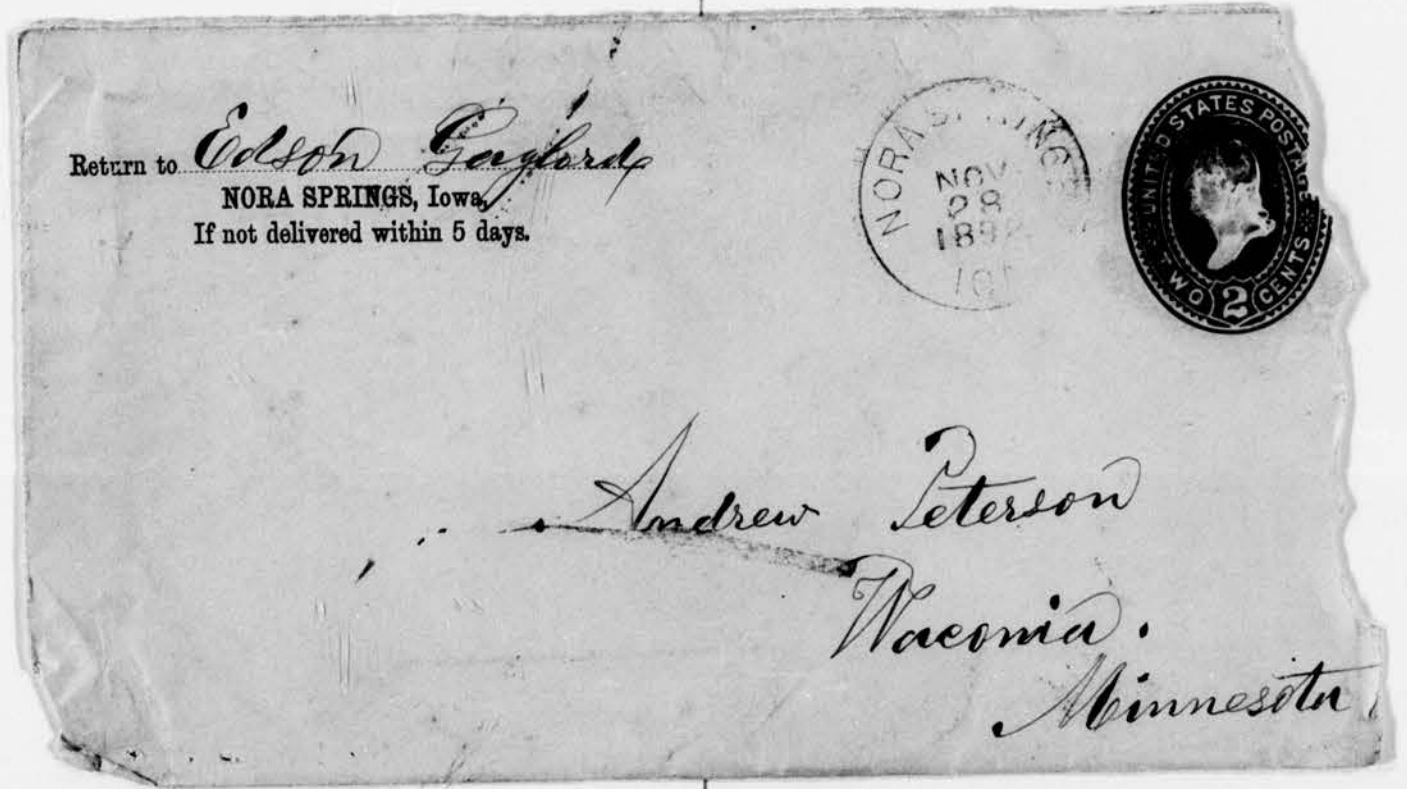 Return to Edson Gaylord
NORA SPRINGS, Iowa,
If not delivered within 5 days.
NORA SPRINGS
NOV
28
1892
UNITED STATES POSTAGE
TWO 2 CENTS
Andrew Peterson
Waconia.
Minnesota